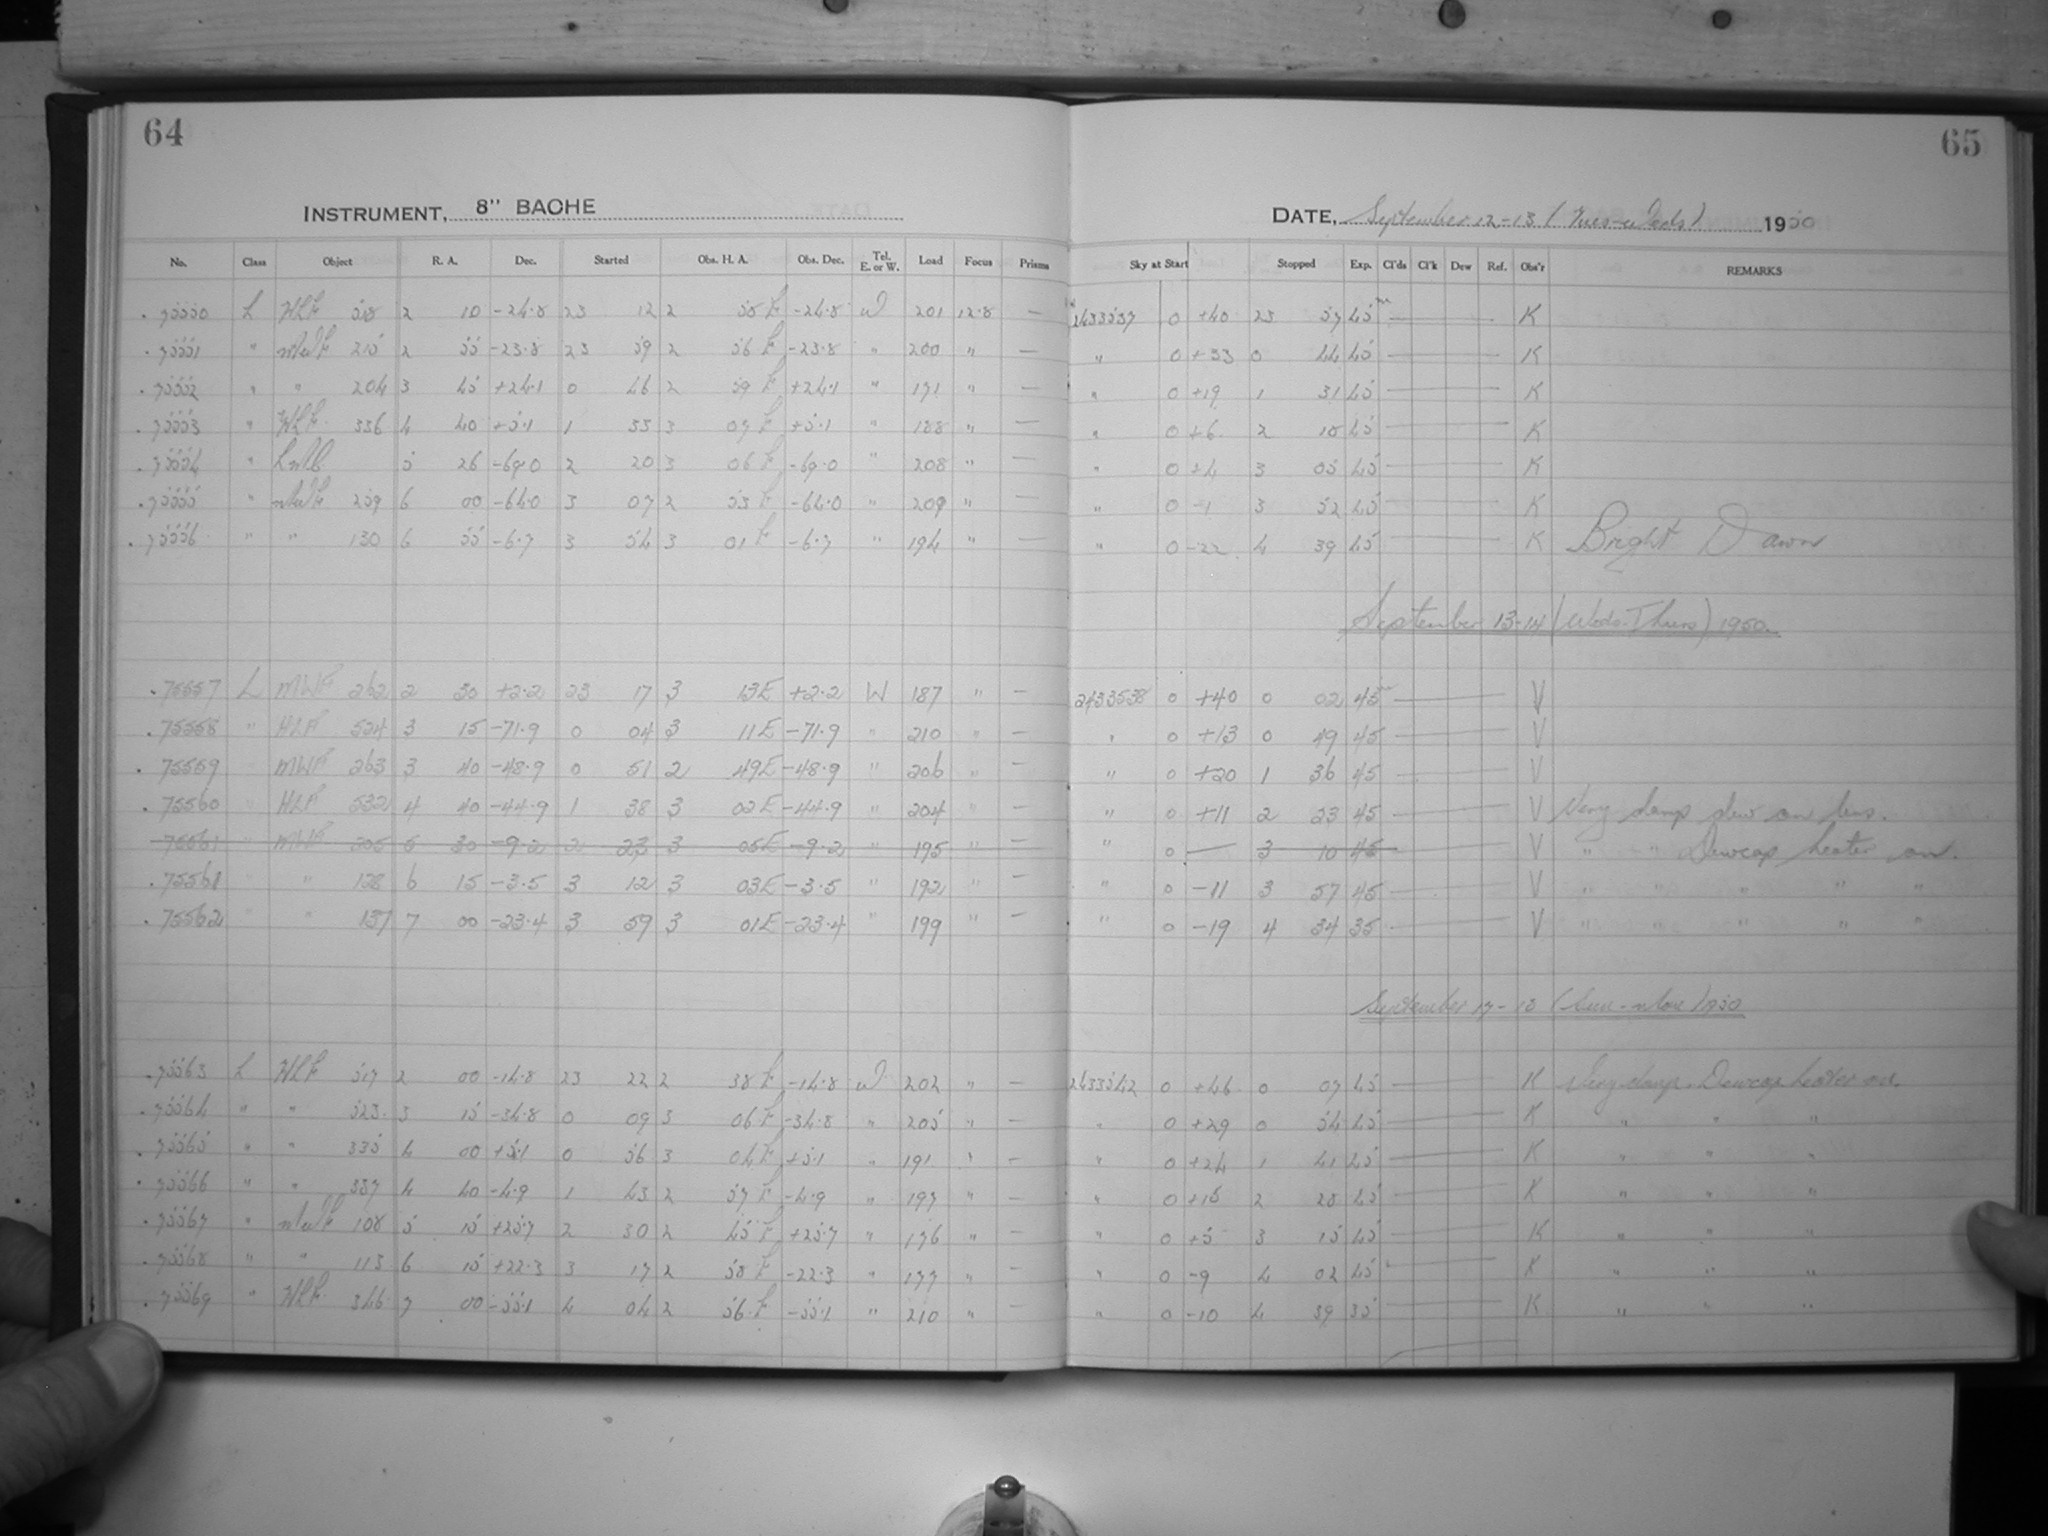 64
65
INSTRUMENT, 8" BACHE
DATE, September 12-13 (Tues-Weds) 1950
No. Class Object R. A. Dec. Started Obs. H. A. Obs. Dec. Tel. E. or W. Load Focus Prisms Sky at Start Stopped Exp. Cl'ds Cl'k Dew Ref. Obs'r REMARKS
75550 L HLF 518 2 10 -24.8 23 12 2 55 E -24.8 W 201 12.8 — 2433537 0 +40 23 57 45m K
75551 " MWF 215 2 55 -23.8 23 59 2 56 E -23.8 " 200 " — " 0 +33 0 44 45 K
75552 " " 204 3 45 +24.1 0 46 2 59 E +24.1 " 171 " — " 0 +19 1 31 45 K
75553 " HLF 336 4 40 +5.1 1 33 3 07 E +5.1 " 188 " — " 0 +6 2 18 45 K
75554 " LMC 5 26 -69.0 2 20 3 06 E -69.0 " 208 " — " 0 +4 3 05 45 K
75555 " MWF 259 6 00 -64.0 3 07 2 53 E -64.0 " 209 " — " 0 -1 3 52 45 K
75556 " " 130 6 55 -6.7 3 54 3 01 E -6.7 " 194 " — " 0 -22 4 39 45 K Bright Dawn
September 13-14 (Weds-Thurs) 1950
75557 L MWF 262 2 30 +2.2 23 17 3 13E +2.2 W 187 " — 2433538 0 +40 0 02 45m V
75558 " HLF 524 3 15 -71.9 0 04 3 11E -71.9 " 210 " — " 0 +13 0 49 45 V
75559 MWF 263 3 40 -48.9 0 51 2 49E -48.9 " 206 " — " 0 +20 1 36 45 V
75560 " HLF 532 4 40 -44.9 1 38 3 02E -44.9 " 204 " — " 0 +11 2 23 45 V Very damp dew on lens.
75561 " MWF 305 5 30 -9.2 2 23 3 05E -9.2 " 195 " — " 0 — 3 10 45 V " " Dewcap heater on.
75561 " " 128 6 15 -3.5 3 12 3 03E -3.5 " 192 " — " 0 -11 3 57 45 V " " " " "
75562 " " 137 7 00 -23.4 3 59 3 01E -23.4 " 199 " — " 0 -19 4 34 35 V " " " " "
September 17-18 (Sun-Mon) 1950
75563 L HLF 517 2 00 -14.8 23 22 2 38 E -14.8 W 202 " — 2433542 0 +46 0 07 45 K Very damp. Dewcap heater on.
75564 " " 523 3 15 -34.8 0 09 3 06 E -34.8 " 205 " — " 0 +29 0 54 45 K " " "
75565 " " 335 4 00 +5.1 0 56 3 04 E +5.1 " 191 " — " 0 +24 1 41 45 K " " "
75566 " " 337 4 40 -4.9 1 43 2 57 E -4.9 " 197 " — " 0 +15 2 28 45 K " " "
75567 " MWF 108 5 15 +25.7 2 30 2 45 E +25.7 " 176 " — " 0 +5 3 15 45 K " " "
75568 " " 113 6 15 +22.3 3 17 2 58 E -22.3 " 177 " — " 0 -9 4 02 45 K " " "
75569 " HLF 346 7 00 -55.1 4 04 2 56 E -55.1 " 210 " — " 0 -10 4 39 35 K " " "